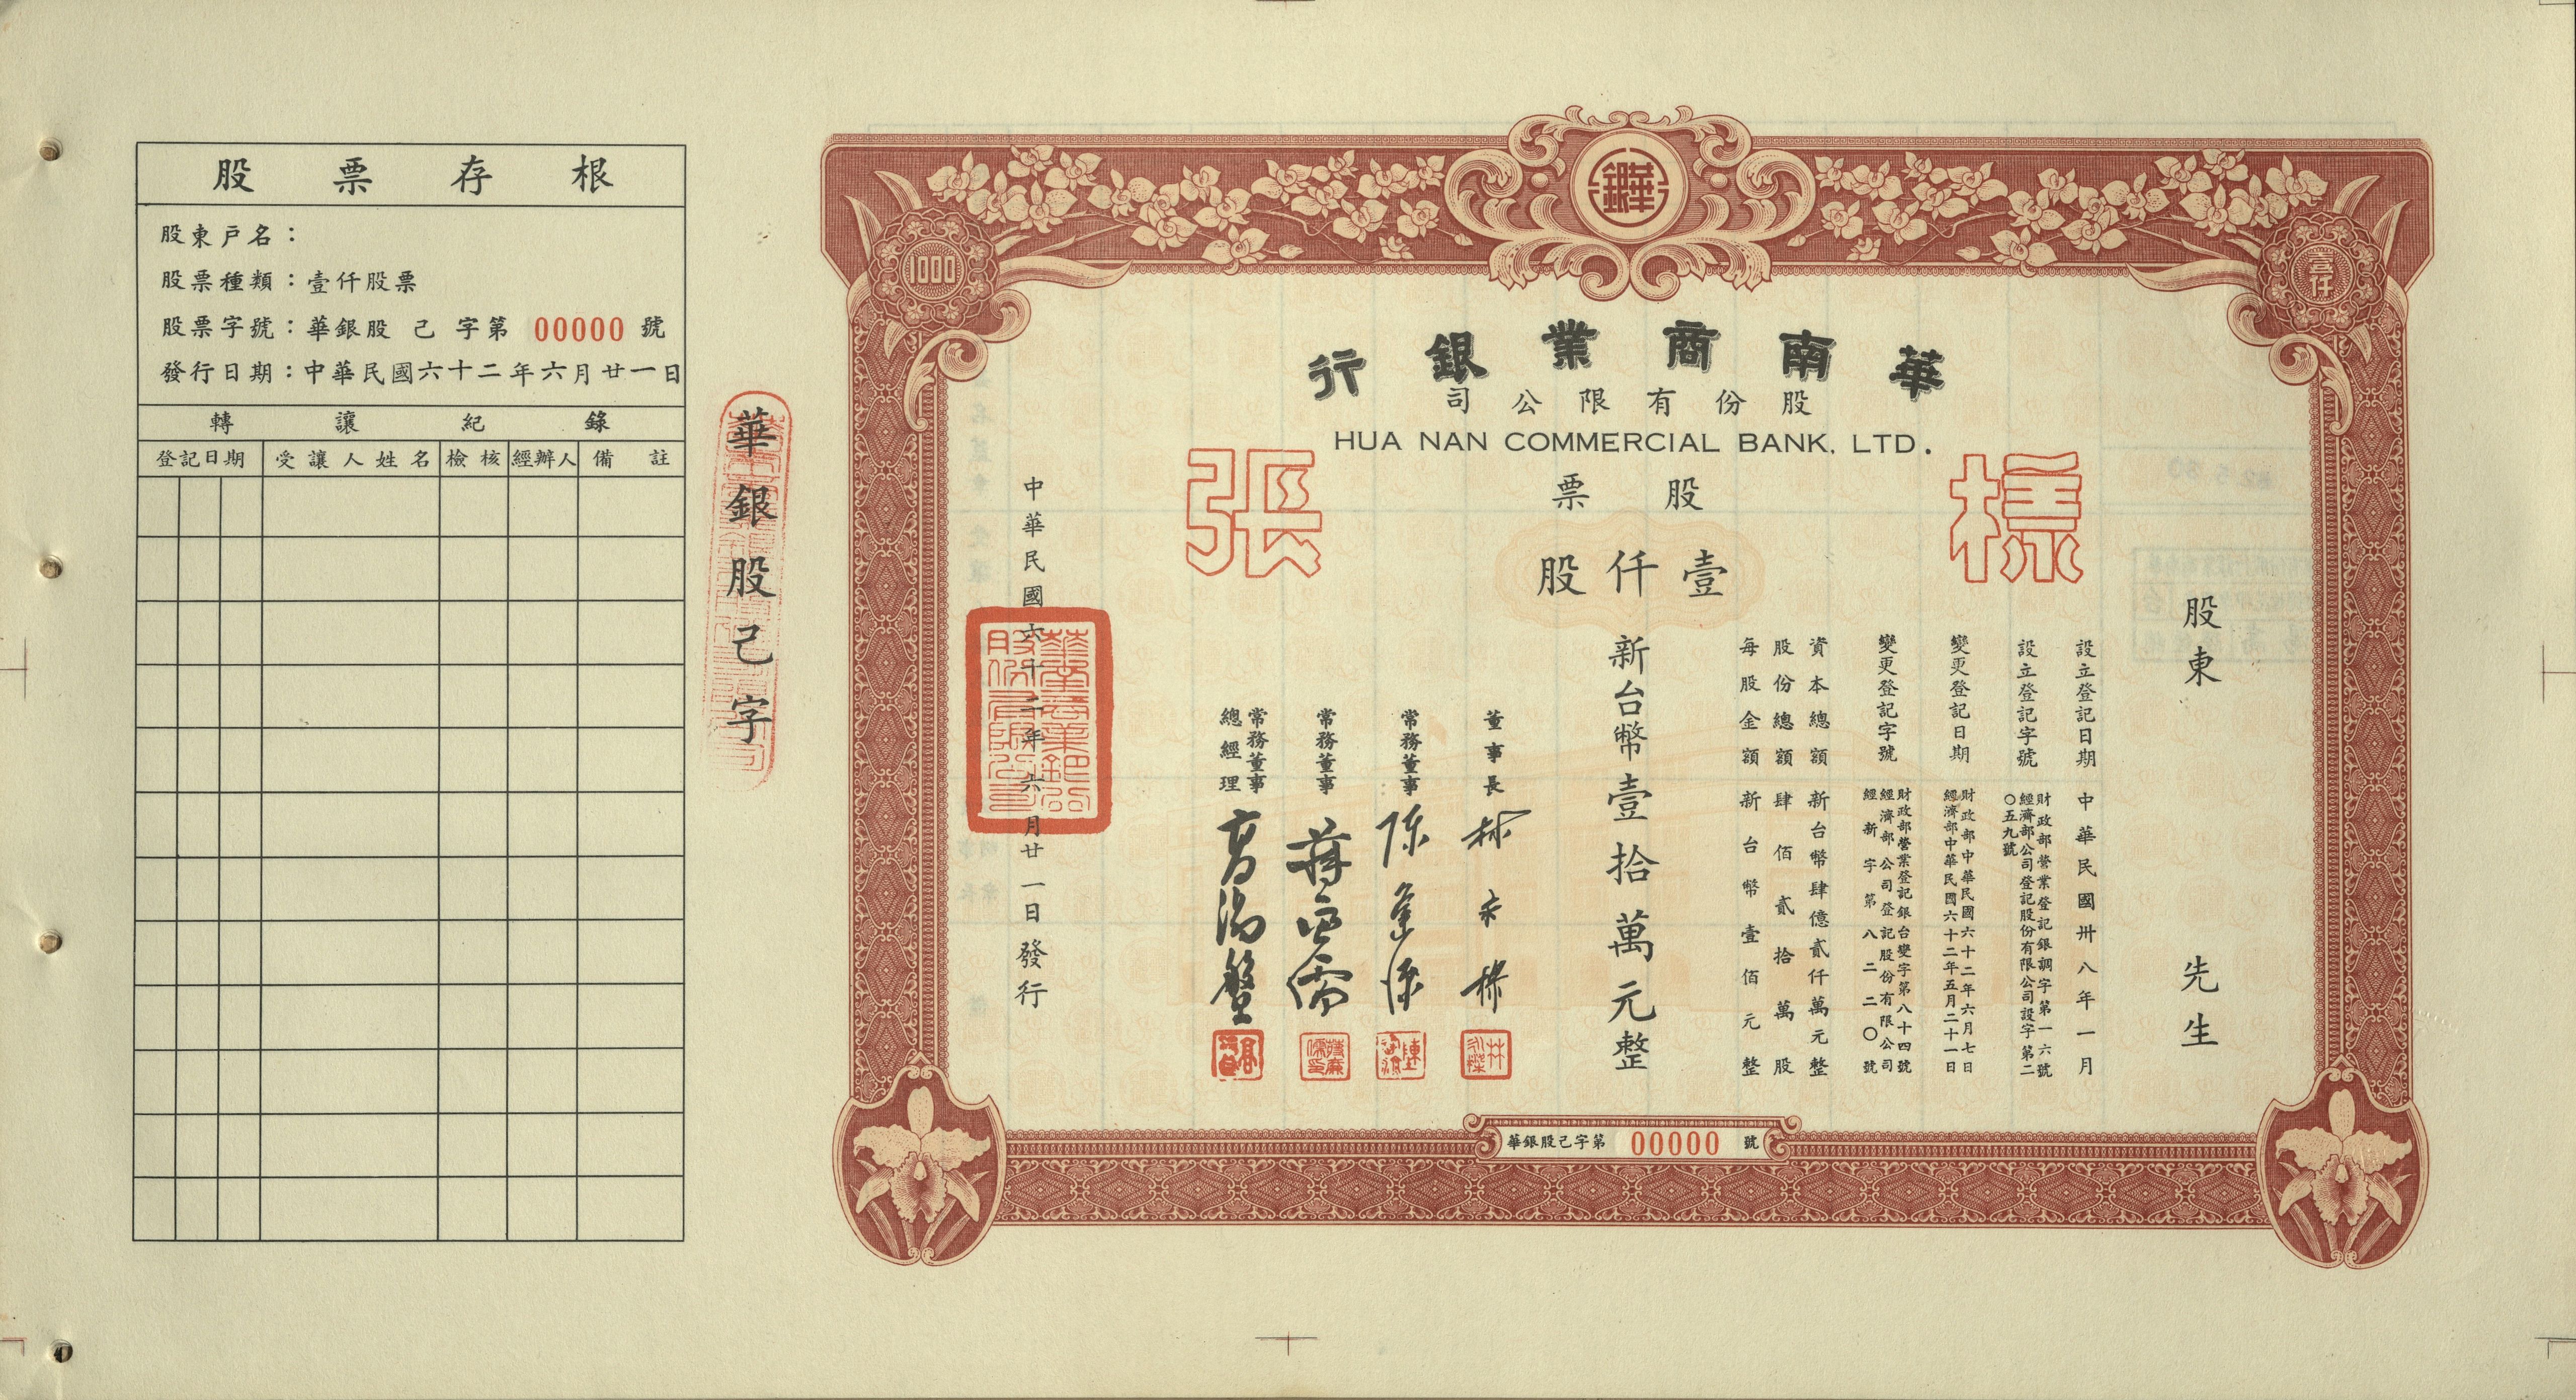 股票存根
股東戶名：
股票種類：壹仟股票
股票字號：華銀股 己 字第 00000 號
發行日期：中華民國六十二年六月廿一日
轉讓紀錄
登記日期 受讓人姓名 檢核 經辦人 備註
華銀股己字
1000
華銀
壹仟
華南商業銀行
股份有限公司
HUA NAN COMMERCIAL BANK, LTD.
樣張
股票
壹仟股
股東 先生
設立登記日期 中華民國卅八年一月
設立登記字號 財政部營業登記銀調字第一六號
經濟部公司登記股份有限公司設字第二〇五九號
變更登記日期 財政部中華民國六十二年六月七日
經濟部中華民國六十二年五月二十一日
變更登記字號 財政部營業登記銀台變字第八十四號
經濟部公司登記股份有限公司
經新字第八二二〇號
資本總額 新台幣肆億貳仟萬元整
股份總額 肆佰貳拾萬股
每股金額 新台幣壹佰元整
新台幣壹拾萬元整
董事長 林永樑
常務董事
常務董事
常務董事
總經理
中華民國六十二年六月廿一日發行
華銀股己字第 00000 號